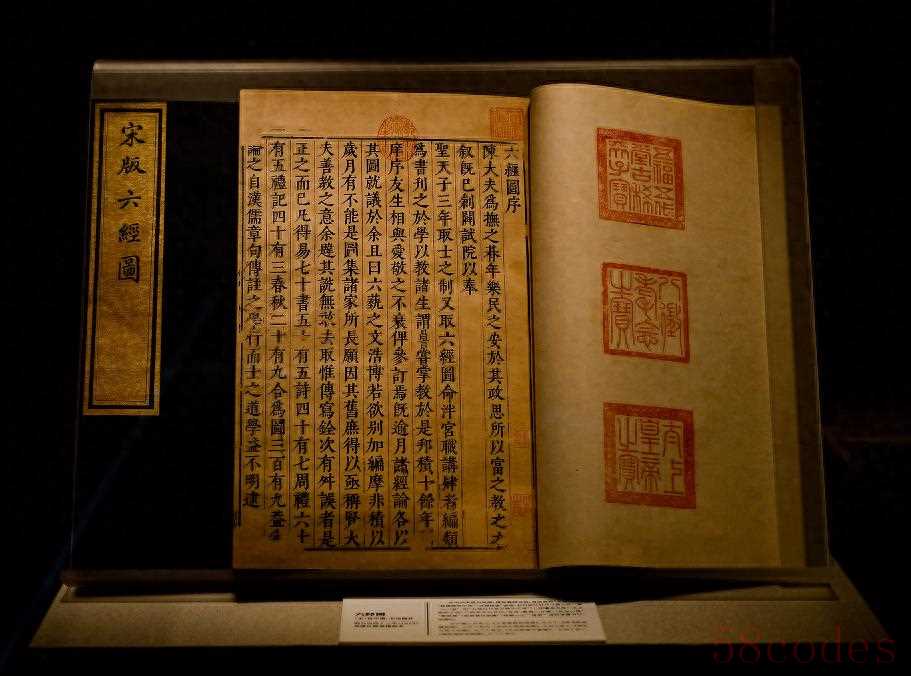 宋版六經圖
五福五代堂古稀天子寶
八徵耄念之寶
太上皇帝之寶
六經圖序
陳大夫為撫之朞年樂民之安於其政思所以富之教之之
叙既已剏闢試院以奉
聖天子三年取士之制又取六經圖命泮官職講肄者編類
為書刊之於學以教諸生謂嘗掌教於是邦積十餘年
庠序友生相與愛敬之不衰俾參訂焉既逾月諸經論各以
其圖就議於余且曰六藝之文浩博若欲别加編摩非積以
歲月有不能是圖集諸家所長願因其舊庶得以亟稱賢大
夫善教之意余其說無去取惟傳寫銓次有舛誤者是
正之而已凡得易七十書五十有五詩四十有七周禮六十
有五禮記四十有三春秋二十有九合為圖三百有九蓋
論之自漢儒章句傳註之學行而士之道學益不明逮
六經圖
58codes